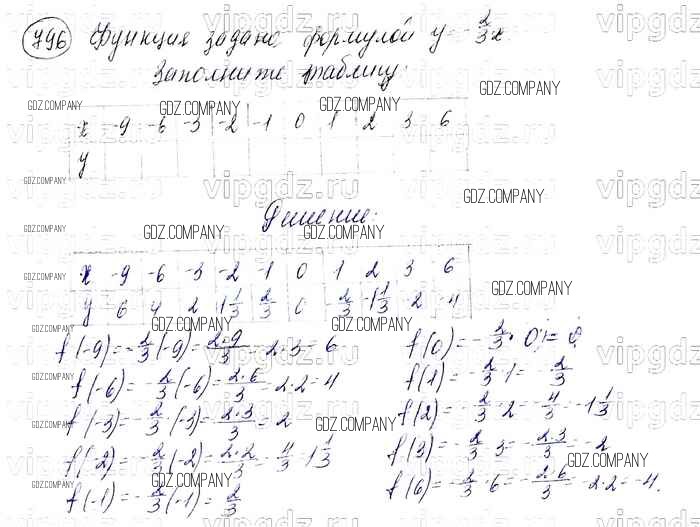 796 Функция задана формулой y = -2/3x
Заполните таблицу:
x -9 -6 -3 -2 -1 0 1 2 3 6
y
Решение:
x -9 -6 -3 -2 -1 0 1 2 3 6
y 6 4 2 1 1/3 2/3 0 -2/3 -1 1/3 -2 -4
f(-9) = -2/3(-9) = 2·9/3 = 2·3 = 6
f(-6) = -2/3(-6) = 2·6/3 = 2·2 = 4
f(-3) = -2/3(-3) = 2·3/3 = 2
f(-2) = -2/3(-2) = 2·2/3 = 4/3 = 1 1/3
f(-1) = -2/3(-1) = 2/3
f(0) = -2/3·0 = 0
f(1) = -2/3·1 = -2/3
f(2) = -2/3·2 = -4/3 = -1 1/3
f(3) = -2/3·3 = -2·3/3 = -2
f(6) = -2/3·6 = -2·6/3 = -2·2 = -4.
vipgdz.ru
GDZ.COMPANY